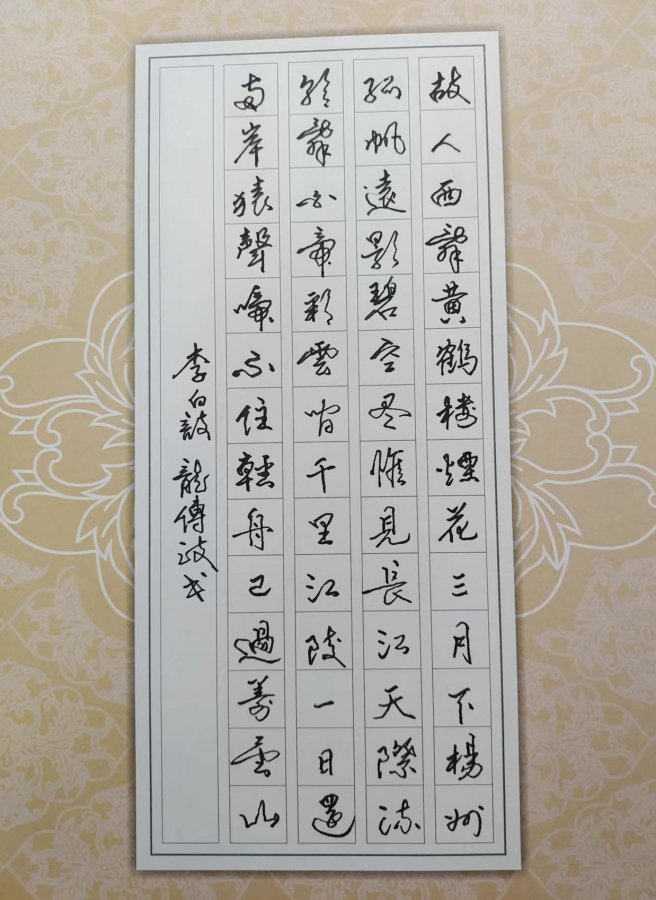 故人西辭黃鶴樓煙花三月下楊州
孤帆遠影碧空尽惟見長江天際流
朝辭白帝彩雲间千里江陵一日還
两岸猿聲啼不住輕舟已過萬重山
李白 龍傳政书